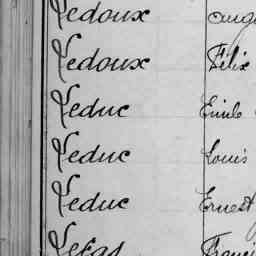 Ledoux Augu
Ledoux Félix
Leduc Emile
Leduc Louis
Leduc Ernest
Lefas Franci